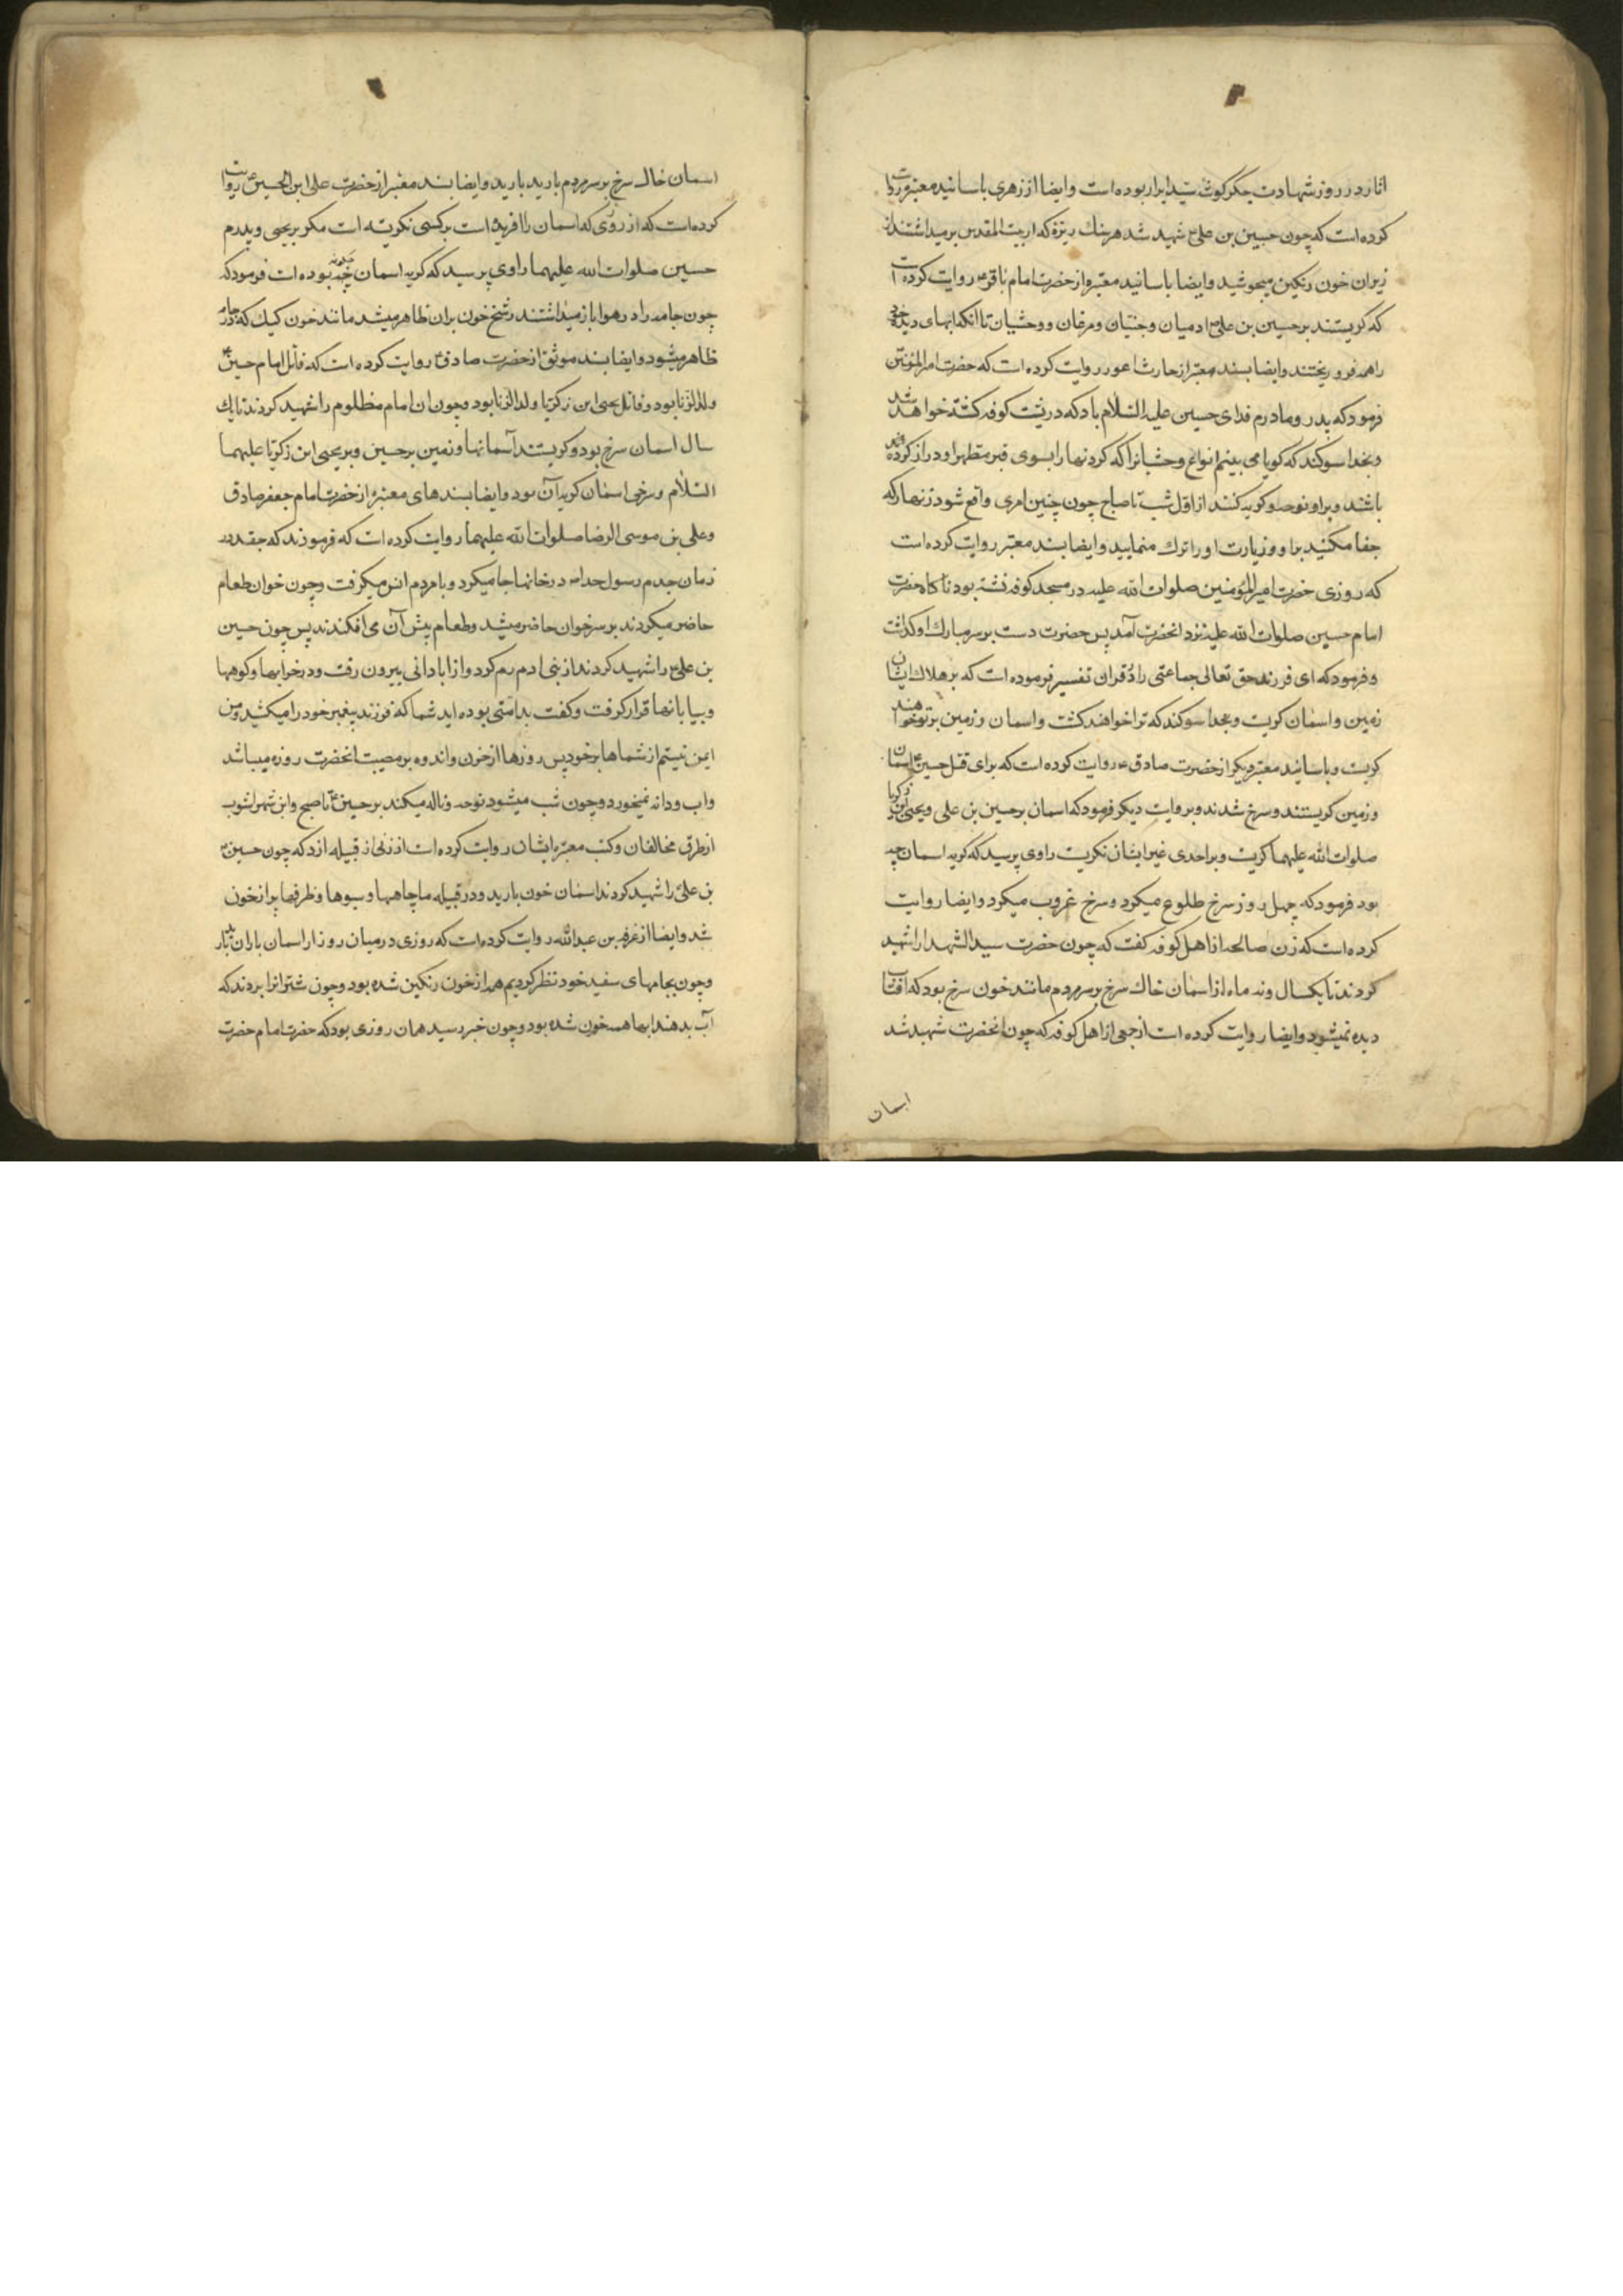 اثار در روز شهادت جکرکوشه سید ابرار بوده است و ایضا از زهری باسانید معتبره روایت
کرده است که چون حسین بن علی ع شهید شد هر سنک ریزه که از بیت المقدس برمیداشتند از
زیر ان خون رنکین میجوشید و ایضا باسانید معتبره از حضرت امام باقر ع روایت کرده است
که کریستند بر حسین بن علی ع ادمیان و جنیان و مرغان و وحشیان تا انکه ابهای دیده خود
را همه فرو ریختند و ایضا بسند معتبر از حارث اعور روایت کرده است که حضرت امیر المؤمنین
فرمود که پدر و مادرم فدای حسین علیه السّلام باد که در پشت کوفه کشته خواهد شد
و بخدا سوکند که کویا می بینم انواع وحشیانرا که کردنها را بسوی قبر مطهر او دراز کرده
باشند و بر او نوحه و کریه کنند از اوّل شب تا صباح چون چنین امری واقع شود زنهار که
جفا مکنید بر او و زیارت او را ترک منمایید و ایضا بسند معتبر روایت کرده است
که روزی حضرت امیر المؤمنین صلوات الله علیه در مسجد کوفه نشته بود ناکاه حضرت
امام حسین صلوات الله علیه نزد انحضرت آمد پس حضرت دست بر سر مبارک او کذاشت
و فرمود که ای فرزند حق تعالی جماعتی را در قران تفسیر فرموده است که بر هلاک ایشان
زمین و اسمان کریست و بخدا سوکند که ترا خواهند کشت و اسمان و زمین بر تو خواهند
کریست و باسانید معتبر دیکر از حضرت صادق ع روایت کرده است که برای قتل حسین ع اسمان
و زمین کریستند و سرخ شدند و بروایت دیکر فرمود که اسمان بر حسین بن علی و یحیی ابن زکریا
صلوات الله علیهما کریست و بر احدی غیر ایشان نکریست راوی پرسید که کریه اسمان چه
بود فرمود که چهل روز سرخ طلوع میکرد و سرخ غروب میکرد و ایضا روایت
کرده است که زن صالحه از اهل کوفه کفت که چون حضرت سید الشهدا را شهید
کردند تا یکسال و نه ماه از اسمان خاک سرخ بر سر مردم مانند خون سرخ بود که افتاب
دیده نمیشود و ایضا روایت کرده است از جمعی از اهل کوفه که چون انحضرت شهید شد
اسمان
اسمان خاک سرخ بر سر مردم بارید بارید و ایضا بسند معتبر از حضرت علی ابن الحسین ع روایت
کرده است که از روزی که اسمان را افریده است بر کسی نکریسته است مکر بر یحیی و پدرم
حسین صلوات الله علیهما راوی پرسید که کریه اسمان چه کونه بوده است فرمود که
چون جامه را در هوا باز میداشتند رشخ خون بران ظاهر میشد مانند خون کیک که در جامه
ظاهر میشود و ایضا بسند موثق از حضرت صادق ع روایت کرده است که قاتل امام حسین ع
ولد الزنا بود و قاتل یحیی ابن زکریا ولد الزنا بود و چون ان امام مظلوم را شهید کردند تا یک
سال اسمان سرخ بود و کریستند آسمانها و زمین بر حسین و بر یحیی ابن زکریا علیهما
السّلام و سرخی اسمان کریه آن بود و ایضا بسندهای معتبر از حضرت امام جعفر صادق
و علی بن موسی الرضا صلوات الله علیهما روایت کرده است که فرمودند که جغد در
زمان جدم رسول خدا ص در خانها جا میکرد و با مردم انس میکرفت و چون خوان طعام
حاضر میکردند بر سر خوان حاضر میشد و طعام پیش آن می افکندند پس چون حسین
بن علی ع را شهید کردند از بنی ادم رم کرد و از ابادانی بیرون رفت و در خرابها و کوهها
و بیابانها قرار کرفت و کفت بد امتی بوده اید شما که فرزند پیغمبر خود را میکشید و من
ایمن نیستم از شماها بر خود پس روزها از حزن و اندوه بر مصیبت انحضرت روزه میباشد
و اب و دانه نمیخورد و چون شب میشود نوحه و ناله میکند بر حسین ع تا صبح و ابن شهراشوب
از طرق مخالفان و کتب معتبره ایشان روایت کرده است از زنی از قبیله ازد که چون حسین ع
بن علی ع را شهید کردند اسمان خون بارید و در قبیله ما چاهها و سبوها و ظرفها پر از خون
شد و ایضا از بن عبد الله روایت کرده است که روزی در میان روز از اسمان باران
و چون بجامهای سفید خود نظر کردیم همه از خون رنکین شده بود و چون شتر انرا بردند که
آب بدهند ابها همه خون شده بود و چون خبر رسید همان روزی بود که حضرت امام حضرت